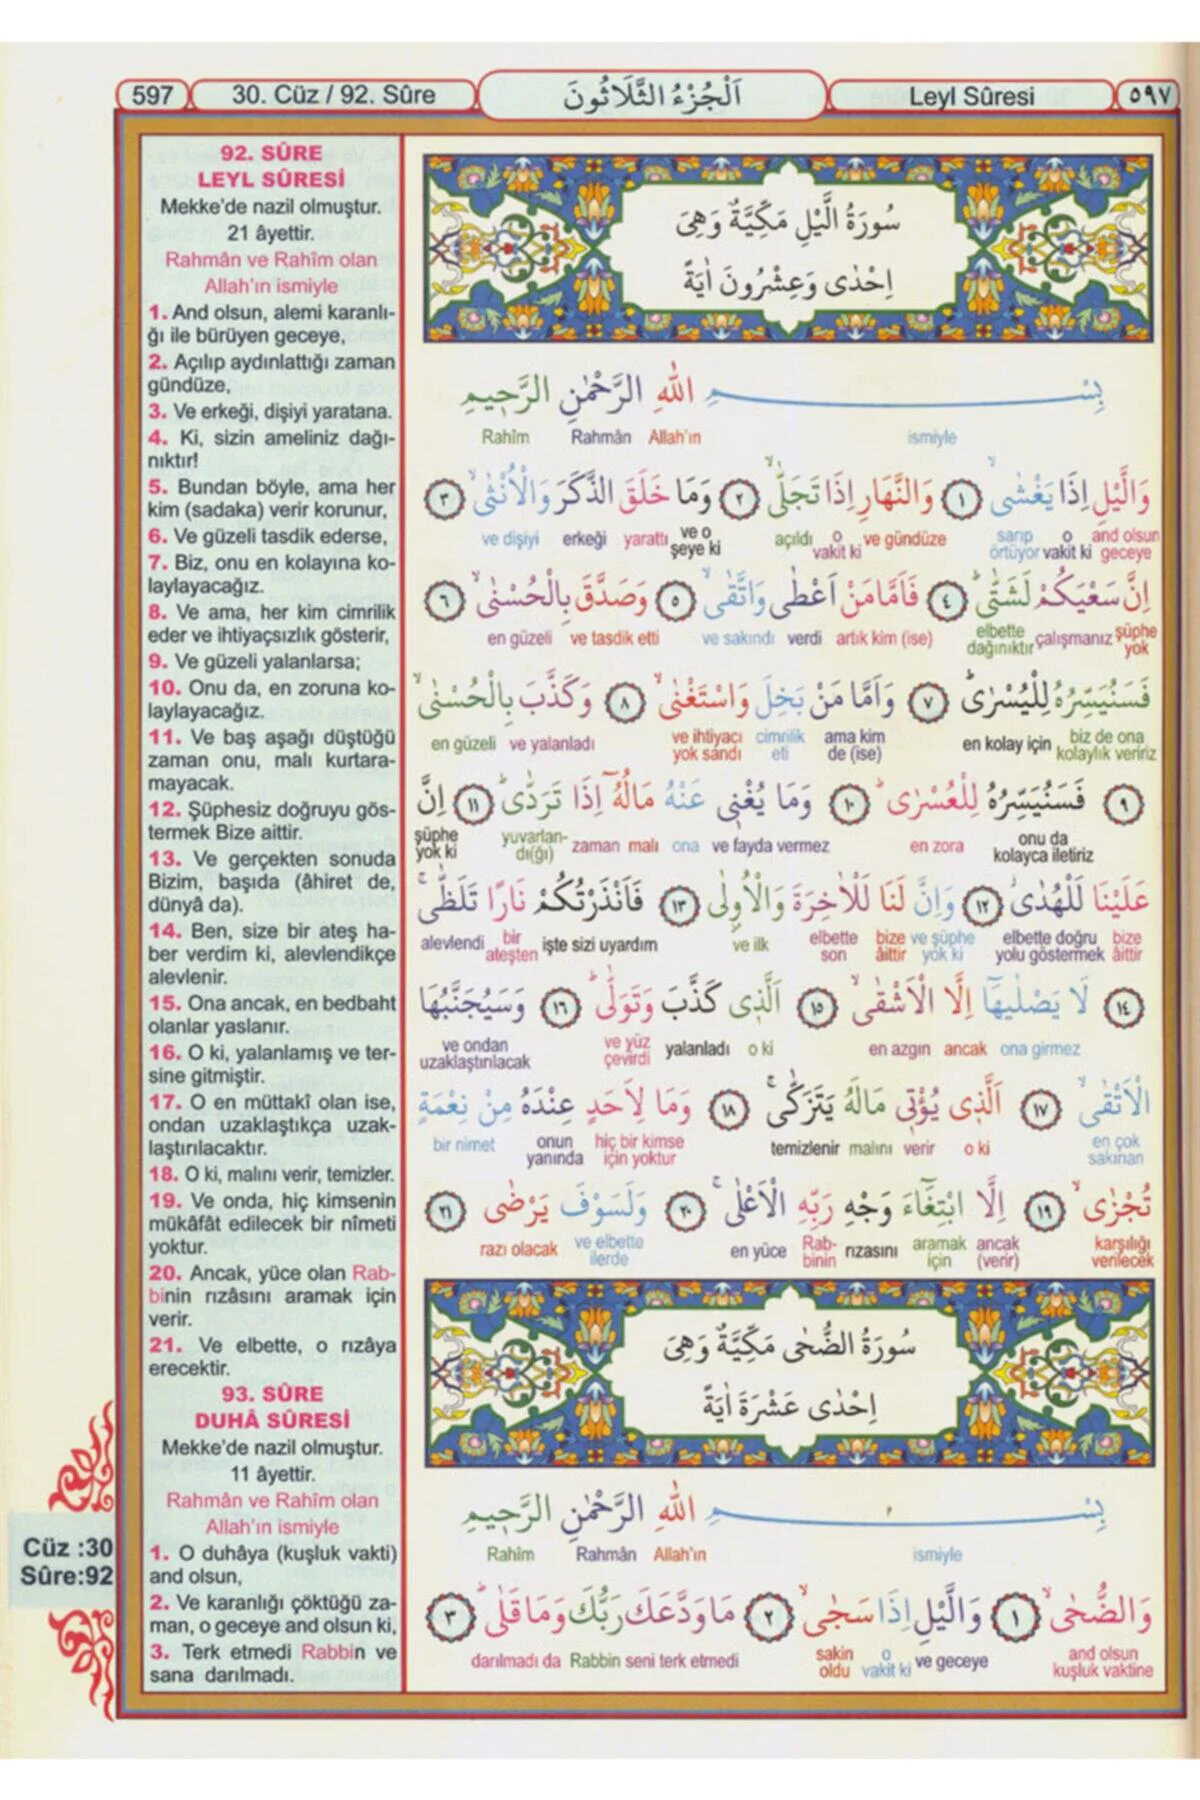 597
30. Cüz / 92. Sûre
اَلْجُزْءُ الثَّلَاثُونَ
Leyl Sûresi
٥٩٧
92. SÛRE
LEYL SÛRESİ
Mekke'de nazil olmuştur.
21 âyettir.
Rahmân ve Rahîm olan
Allah'ın ismiyle
1. And olsun, alemi karanlı-
ğı ile bürüyen geceye,
2. Açılıp aydınlattığı zaman
gündüze,
3. Ve erkeği, dişiyi yaratana.
4. Ki, sizin ameliniz dağı-
nıktır!
5. Bundan böyle, ama her
kim (sadaka) verir korunur,
6. Ve güzeli tasdik ederse,
7. Biz, onu en kolayına ko-
laylayacağız.
8. Ve ama, her kim cimrilik
eder ve ihtiyaçsızlık gösterir,
9. Ve güzeli yalanlarsa;
10. Onu da, en zoruna ko-
laylayacağız.
11. Ve baş aşağı düştüğü
zaman onu, malı kurtara-
mayacak.
12. Şüphesiz doğruyu gös-
termek Bize aittir.
13. Ve gerçekten sonuda
Bizim, başıda (âhiret de,
dünyâ da).
14. Ben, size bir ateş ha-
ber verdim ki, alevlendikçe
alevlenir.
15. Ona ancak, en bedbaht
olanlar yaslanır.
16. O ki, yalanlamış ve ter-
sine gitmiştir.
17. O en müttakî olan ise,
ondan uzaklaştıkça uzak-
laştırılacaktır.
18. O ki, malını verir, temizler.
19. Ve onda, hiç kimsenin
mükâfât edilecek bir nîmeti
yoktur.
20. Ancak, yüce olan Rab-
binin rızâsını aramak için
verir.
21. Ve elbette, o rızâya
erecektir.
93. SÛRE
DUHÂ SÛRESİ
Mekke'de nazil olmuştur.
11 âyettir.
Rahmân ve Rahîm olan
Allah'ın ismiyle
1. O duhâya (kuşluk vakti)
and olsun,
2. Ve karanlığı çöktüğü za-
man, o geceye and olsun ki,
3. Terk etmedi Rabbin ve
sana darılmadı.
Cüz :30
Sûre:92
سُورَةُ الَّيْلِ مَكِّيَّةٌ وَهِىَ
اِحْدٰى وَعِشْرُونَ اٰيَةً
بِسْمِ اللّٰهِ الرَّحْمٰنِ الرَّحٖيمِ
ismiyle Allah'ın Rahmân Rahîm
وَالَّيْلِ اِذَا يَغْشٰىۙ ١ وَالنَّهَارِ اِذَا تَجَلّٰىۙ ٢ وَمَا خَلَقَ الذَّكَرَ وَالْاُنْثٰىۙ ٣
and olsun geceye o vakit ki sarıp örtüyor ve gündüze o vakit ki açıldı ve o şeye ki yarattı erkeği ve dişiyi
اِنَّ سَعْيَكُمْ لَشَتّٰىؕ ٤ فَاَمَّا مَنْ اَعْطٰى وَاتَّقٰىۙ ٥ وَصَدَّقَ بِالْحُسْنٰىۙ ٦
şüphe yok çalışmanız elbette dağınıktır artık kim (ise) verdi ve sakındı ve tasdik etti en güzeli
فَسَنُيَسِّرُهُ لِلْيُسْرٰىؕ ٧ وَاَمَّا مَنْ بَخِلَ وَاسْتَغْنٰىۙ ٨ وَكَذَّبَ بِالْحُسْنٰىۙ
biz de ona kolaylık veririz en kolay için ama kim de (ise) cimrilik eti ve ihtiyacı yok sandı ve yalanladı en güzeli
٩ فَسَنُيَسِّرُهُ لِلْعُسْرٰىؕ ١٠ وَمَا يُغْنٖى عَنْهُ مَالُهُٓ اِذَا تَرَدّٰىؕ ١١ اِنَّ
onu da kolayca iletiriz en zora ve fayda vermez ona malı zaman yuvarlan-dı(ğı) şüphe yok ki
عَلَيْنَا لَلْهُدٰىؗ ١٢ وَاِنَّ لَنَا لَلْاٰخِرَةَ وَالْاُولٰى ١٣ فَاَنْذَرْتُكُمْ نَارًا تَلَظّٰىۚ
bize âittir elbette doğru yolu göstermek ve şüphe yok ki bize âittir elbette son ve ilk işte sizi uyardım bir ateşten alevlendi
١٤ لَا يَصْلٰيهَٓا اِلَّا الْاَشْقٰىۙ ١٥ اَلَّذٖى كَذَّبَ وَتَوَلّٰىؕ ١٦ وَسَيُجَنَّبُهَا
ona girmez ancak en azgın o ki yalanladı ve yüz çevirdi ve ondan uzaklaştırılacak
الْاَتْقٰىۙ ١٧ اَلَّذٖى يُؤْتٖى مَالَهُ يَتَزَكّٰىۚ ١٨ وَمَا لِاَحَدٍ عِنْدَهُ مِنْ نِعْمَةٍ
en çok sakınan o ki verir malını temizlenir hiç bir kimse için yoktur onun yanında bir nimet
تُجْزٰىۙ ١٩ اِلَّا ابْتِغَٓاءَ وَجْهِ رَبِّهِ الْاَعْلٰىۚ ٢٠ وَلَسَوْفَ يَرْضٰى ٢١
karşılığı verilecek ancak (verir) aramak için rızasını Rab-binin en yüce ve elbette ilerde razı olacak
سُورَةُ الضُّحٰى مَكِّيَّةٌ وَهِىَ
اِحْدٰى عَشْرَةَ اٰيَةً
بِسْمِ اللّٰهِ الرَّحْمٰنِ الرَّحٖيمِ
ismiyle Allah'ın Rahmân Rahîm
وَالضُّحٰىۙ ١ وَالَّيْلِ اِذَا سَجٰىۙ ٢ مَا وَدَّعَكَ رَبُّكَ وَمَا قَلٰىؕ ٣
and olsun kuşluk vaktine ve geceye o vakit ki sakin oldu seni terk etmedi Rabbin darılmadı da